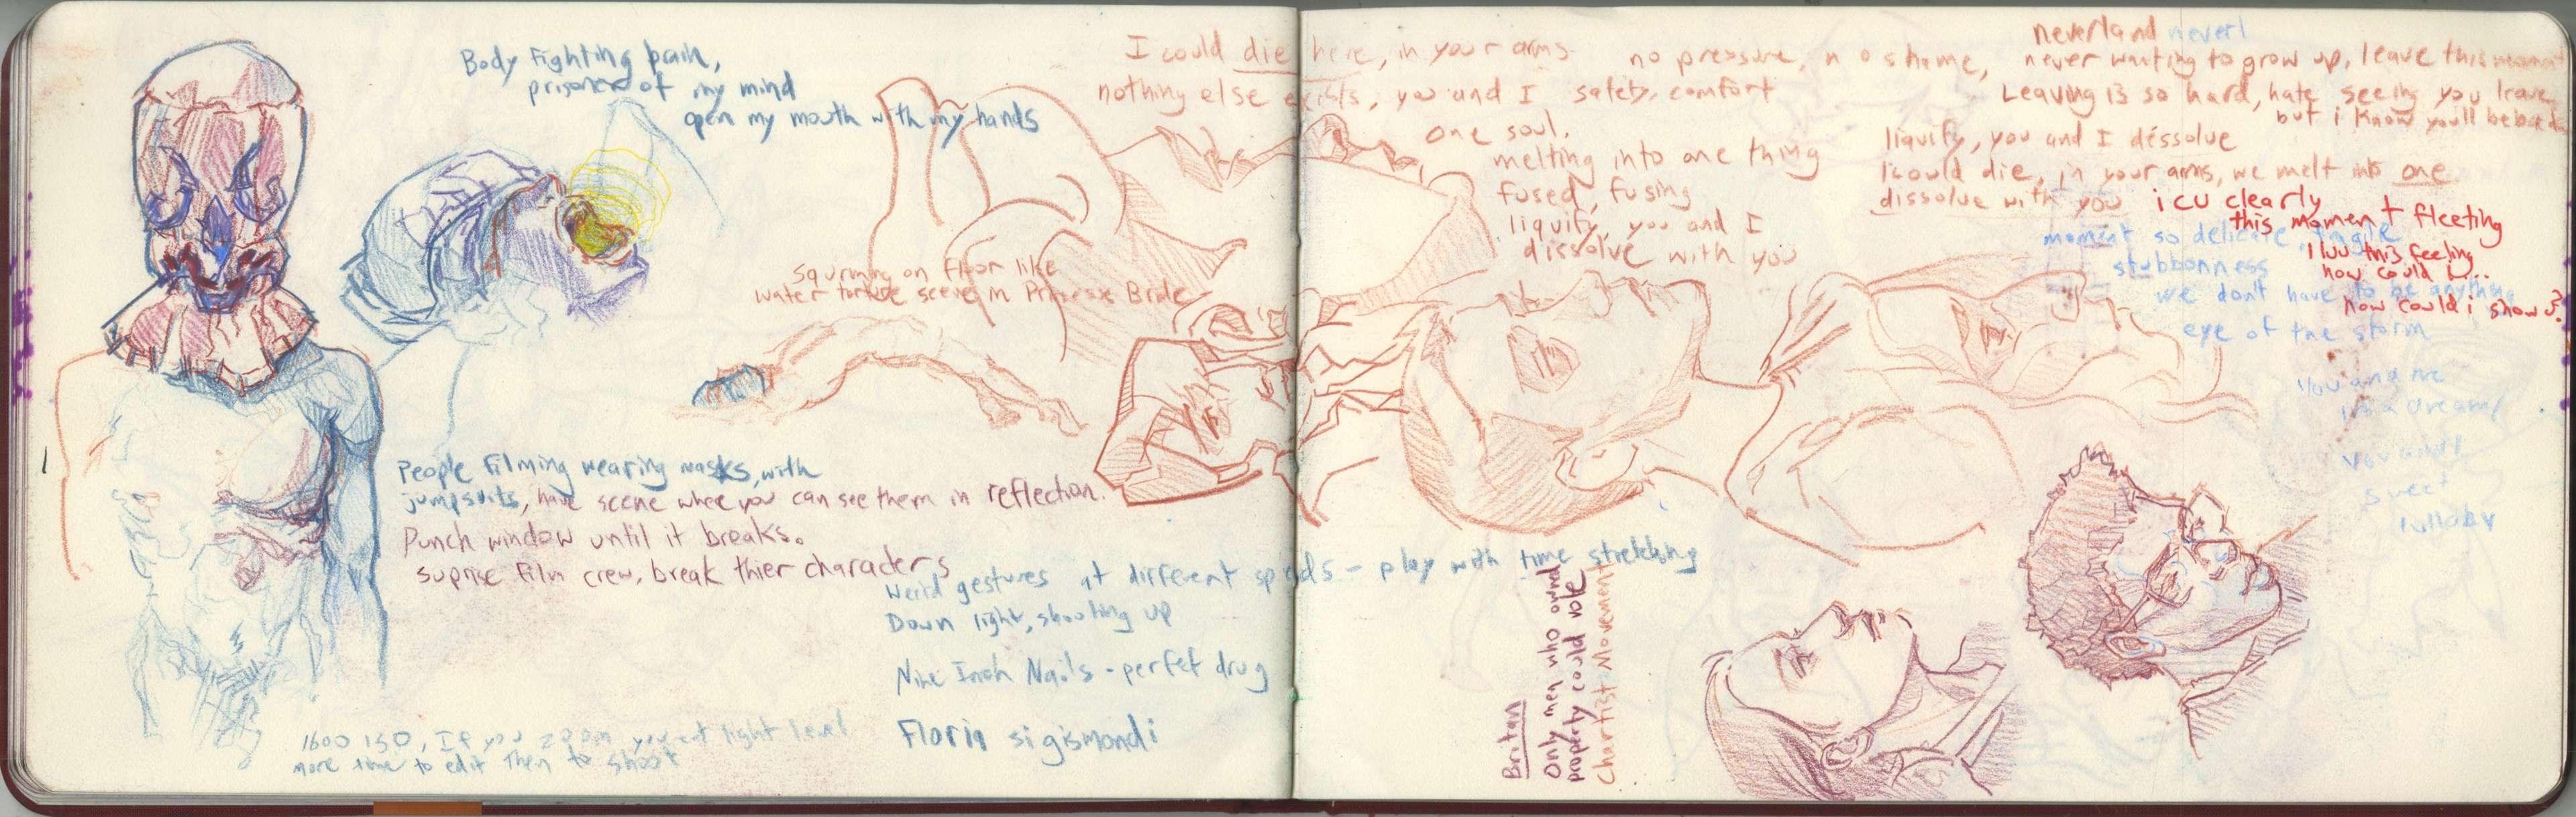 Body fighting pain,
prisoner of my mind
open my mouth with my hands
Squirming on floor like
water torture scene in Princess Bride
People filming wearing masks, with
jumpsuits, have scene where you can see them in reflection.
Punch window until it breaks.
suprise film crew, break thier characters
Weird gestures at different speeds - play with time stretching
Down light, shooting up
Nine Inch Nails - perfet drug
Floria sigismondi
1600 ISO, If you zoom you cut light level
more time to edit then to shoot
I could die here, in your arms
nothing else exists, you and I safety, comfort
no pressure, no shame,
one soul.
melting into one thing
fused, fusing
liquify, you and I
dissolve with you
neverland neverl
never wanting to grow up, leave this moment
Leaving is so hard, hate seeing you leave
but i know you'll be back
liquify, you and I dissolve
I could die, in your arms, we melt into one
dissolve with you
i c u clearly
this moment fleeting
moment so delicate, fragile
I luv this feeling
stubbonness
how could i...
we don't have to be anything
how could i show u?
eye of the storm
you and me
in a dream
you and I
sweet
lullaby
Britan
Only men who owned
property could vote
Chartist Movement